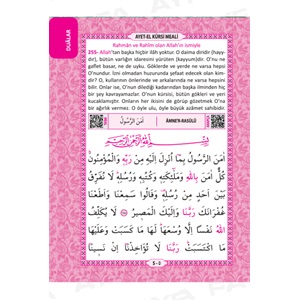 DUALAR
AYET-EL KÜRSİ MEALİ
Rahmân ve Rahîm olan Allah'ın ismiyle
255- Allah'tan başka hiçbir ilâh yoktur. O daima diridir (hayy-
dır), bütün varlığın idaresini yürüten (kayyum)dir. O'nu ne
gaflet basar, ne de uyku. Göklerde ve yerde ne varsa hepsi
O'nundur. İzni olmadan huzurunda şefaat edecek olan kim-
dir? O, kullarının önlerinde ve arkalarında ne varsa hepsini
bilir. Onlar ise, O'nun dilediği kadarından başka ilminden hiç
bir şey kavrayamazlar. O'nun kürsisi, bütün gökleri ve yeri
kucaklamıştır. Onların her ikisini de görüp gözetmek O'na
bir ağırlık vermez. O öyle ulu, öyle büyük azamet sahibidir.
اٰمَنَ الرَّسُولُ
ÂMNE'R-RASÛLÜ
بِسْمِ اللّٰهِ الرَّحْمٰنِ الرَّحِيمِ
اٰمَنَ الرَّسُولُ بِمَٓا اُنْزِلَ اِلَيْهِ مِنْ رَبِّهِ وَالْمُؤْمِنُونَۜ
كُلٌّ اٰمَنَ بِاللّٰهِ وَمَلٰٓئِكَتِهِ وَكُتُبِهِ وَرُسُلِهِۜ لَا نُفَرِّقُ
بَيْنَ اَحَدٍ مِنْ رُسُلِهِۜ وَقَالُوا سَمِعْنَا وَاَطَعْنَا
غُفْرَانَكَ رَبَّنَا وَاِلَيْكَ الْمَصِيرُ لَا يُكَلِّفُ
اللّٰهُ نَفْسًا اِلَّا وُسْعَهَاۜ لَهَا مَا كَسَبَتْ وَعَلَيْهَا
مَا اكْتَسَبَتْۜ رَبَّنَا لَا تُؤَاخِذْنَٓا اِنْ نَسِينَٓا